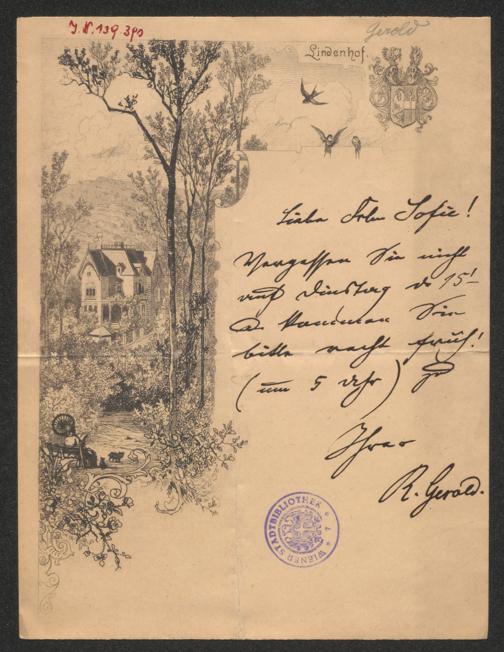 J.N. 139.390
Gerold
Lindenhof.
Liebe Frln Sofie!
Vergessen Sie nicht
auf Dinstag d. 15!
& kommen Sie
bitte recht früh!
(um 5 Uhr)
Ihre
R. Gerold.
WIENER STADTBIBLIOTHEK